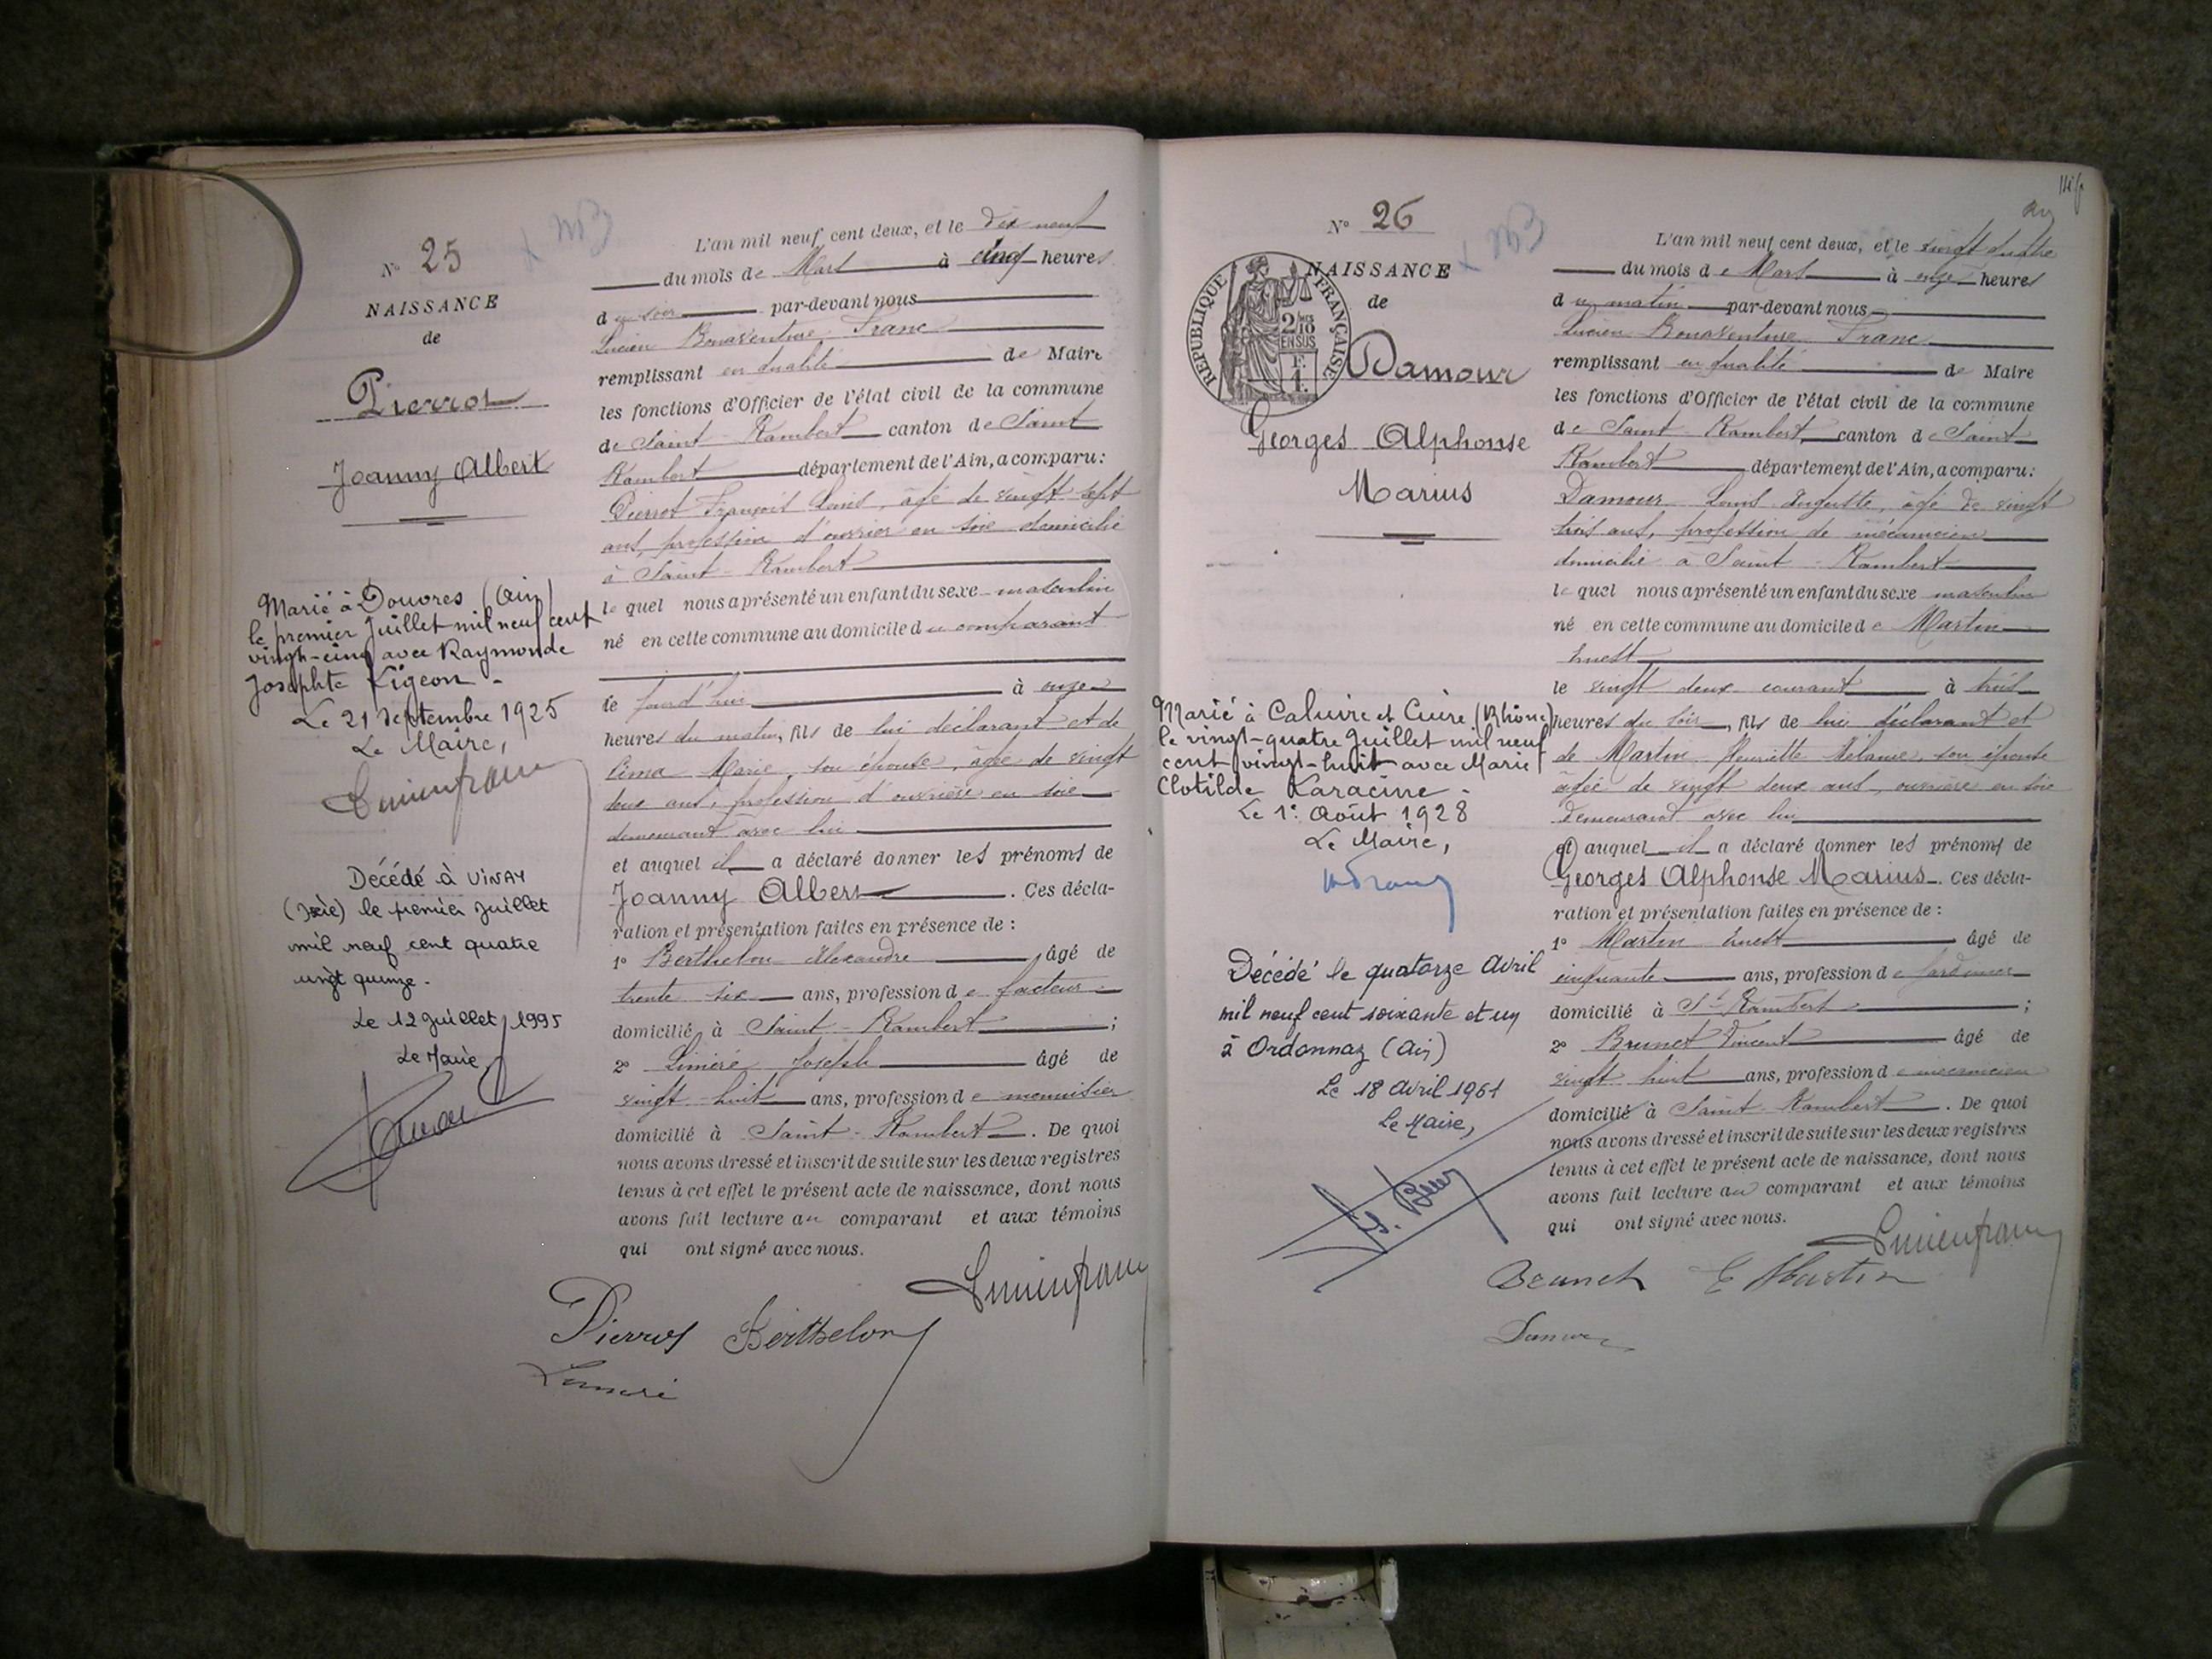 N° 25
NAISSANCE
de
Pierrot
Joanny Albert
Marié à Douvres (Ain)
le premier Juillet mil neuf cent
vingt-cinq avec Raymonde
Josephte Pigeon -
Le 21 Septembre 1925
Le Maire,
Lucien franc
Décédé à VINAY
(Isère) le premier Juillet
mil neuf cent quatre
vingt quinze -
Le 12 Juillet 1995
Le Maire,
L'an mil neuf cent deux, et le dix neuf
du mois de Mars à cinq heures
du soir par-devant nous
Lucien Bonaventure Franc
remplissant en qualité de Maire
les fonctions d'Officier de l'état civil de la commune
de Saint Rambert canton de Saint
Rambert département de l'Ain, a comparu :
Pierrot François Louis, âgé de vingt sept
ans, profession d'ouvrier en soie domicilié
à Saint-Rambert
lequel nous a présenté un enfant du sexe masculin
né en cette commune au domicile du comparant
le jourd'hui à onze
heures du matin, fils de lui déclarant et de
Marie, son épouse, âgée de vingt
ans, profession d'ouvrière en soie
demeurant avec lui
et auquel il a déclaré donner les prénoms de
Joanny Albert. Ces décla-
ration et présentation faites en présence de :
1° Berthelon Alexandre âgé de
trente six ans, profession de facteur
domicilié à Saint-Rambert ;
2° Liméré Joseph âgé de
vingt-huit ans, profession de menuisier
domicilié à Saint-Rambert. De quoi
nous avons dressé et inscrit de suite sur les deux registres
tenus à cet effet le présent acte de naissance, dont nous
avons fait lecture au comparant et aux témoins
qui ont signé avec nous.
Lucien franc
Pierrot Berthelon
Liméré
N° 26
NAISSANCE
de
RÉPUBLIQUE FRANÇAISE
2/10 EN SUS
F. 1.
Damour
Georges Alphonse
Marius
Marié à Caluire et Cuire (Rhône)
le vingt-quatre Juillet mil neuf
cent vingt-huit avec Marie
Clotilde Karacine -
Le 1: Août 1928
Le Maire,
Décédé le quatorze Avril
mil neuf cent soixante et un
à Ordonnaz (Ain)
Le 18 Avril 1961
Le Maire,
L'an mil neuf cent deux, et le vingt quatre
du mois de Mars à onze heures
du matin par-devant nous
Lucien Bonaventure Franc
remplissant en qualité de Maire
les fonctions d'Officier de l'état civil de la commune
de Saint Rambert canton de Saint
Rambert département de l'Ain, a comparu :
Damour Louis Auguste, âgé de vingt
trois ans, profession de mécanicien
domicilié à Saint-Rambert
lequel nous a présenté un enfant du sexe masculin
né en cette commune au domicile de Martin
Ernest
le vingt deux courant à trois
heures du soir, fils de lui déclarant et
de Martin Henriette Mélanie, son épouse
âgée de vingt deux ans, ouvrière en soie
demeurant avec lui
et auquel il a déclaré donner les prénoms de
Georges Alphonse Marius. Ces décla-
ration et présentation faites en présence de :
1° Martin Ernest âgé de
cinquante ans, profession de jardinier
domicilié à St Rambert ;
2° Brunet Vincent âgé de
vingt huit ans, profession de mécanicien
domicilié à Saint-Rambert. De quoi
nous avons dressé et inscrit de suite sur les deux registres
tenus à cet effet le présent acte de naissance, dont nous
avons fait lecture au comparant et aux témoins
qui ont signé avec nous.
Lucien franc
Brunet E Martin
Damour